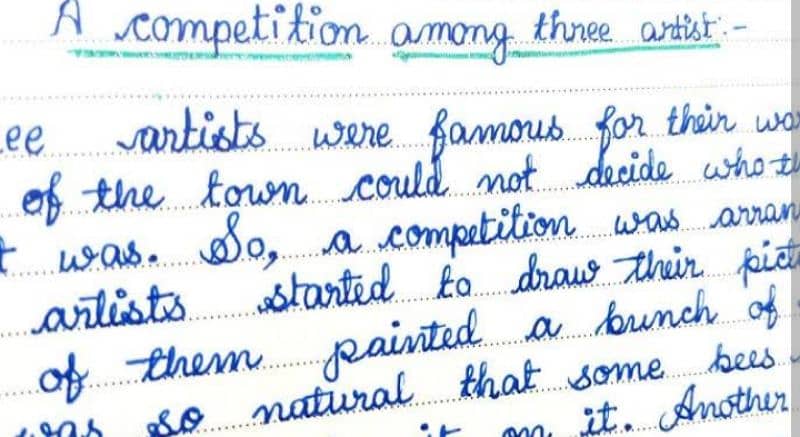 A competition among three artist:-
ee artists were famous for their wo
of the town could not decide who
was. So, a competition was arran
artists started to draw their pict
of them painted a bunch of
was so natural that some bees
it on it. Another